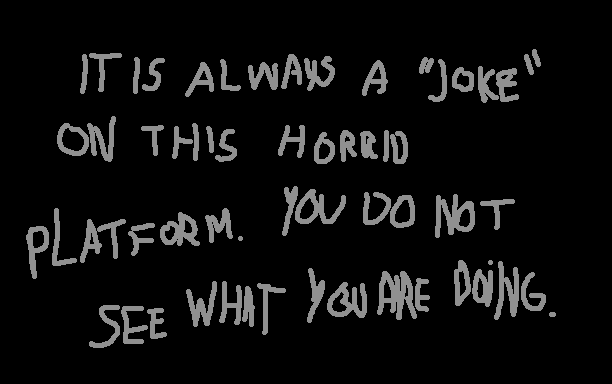 IT IS ALWAYS A "JOKE"
ON THIS HORRID
PLATFORM. YOU DO NOT
SEE WHAT YOU ARE DOING.